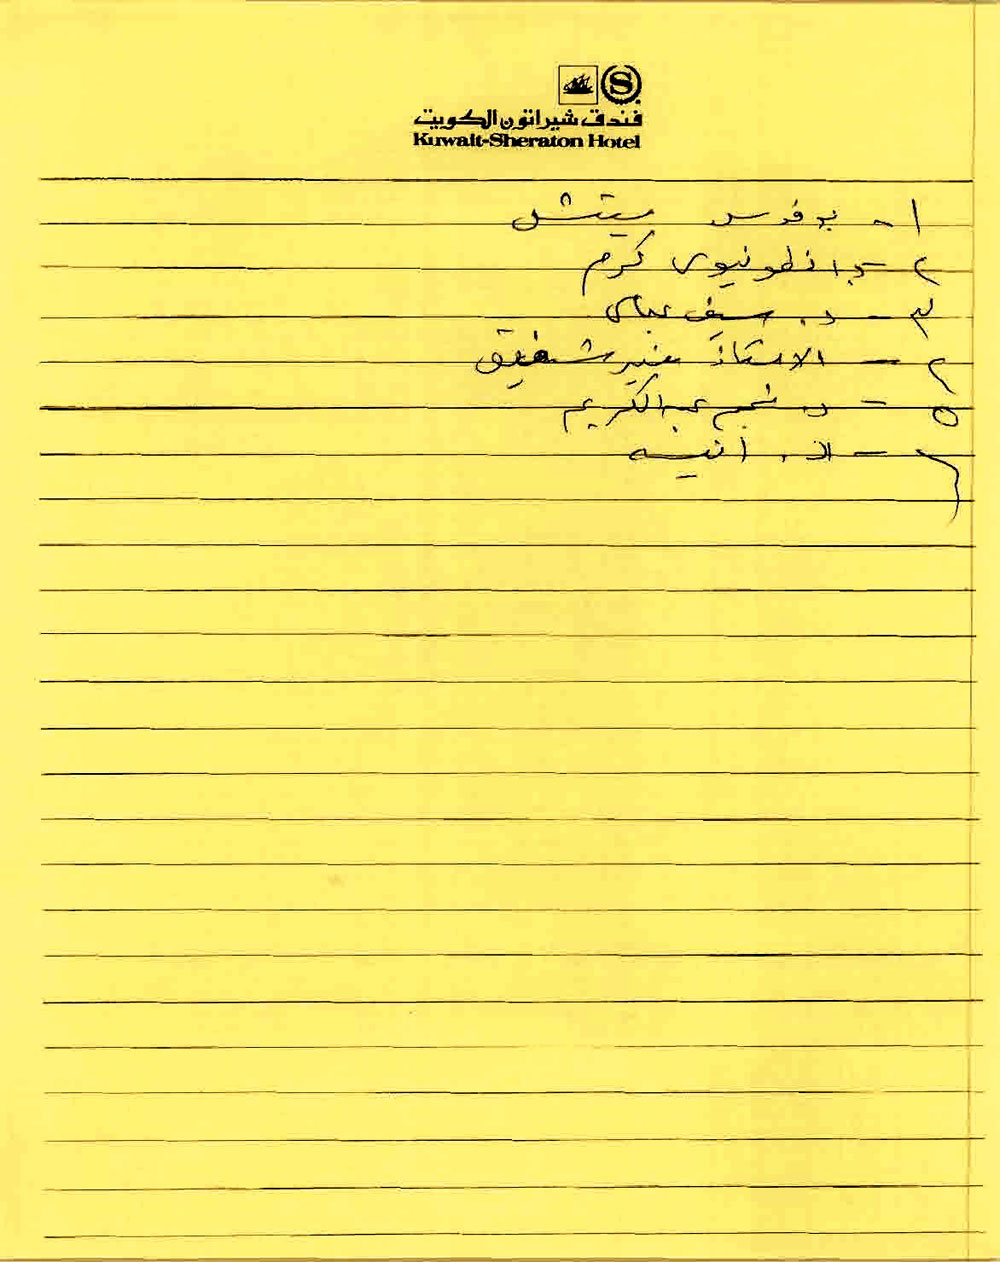 S
فندق شيراتون الكويت
Kuwait-Sheraton Hotel
١ - ميتشل
٢ - د. انطونيوس كرم
٣ - د. سيف عباس
٤ - الاستاذ منير شفيق
٥ - د. نجم عبدالكريم
٦ - انيسه